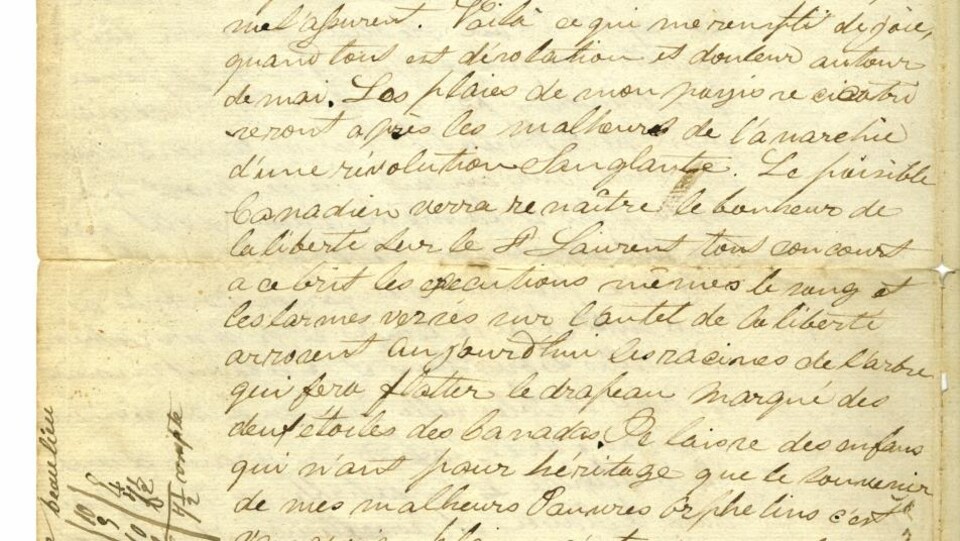 me l'apurent. Voilà ce qui me remplit de joie,
quand tous est désolation et douleur autour
de moi. Les plaies de mon payis se cicatri
seront après les malheurs de l'anarchie
d'une révolution Sanglante. Le paisible
Canadien verra renaître le bonheur de
la liberté sur le St Laurent tous concourt
a ce brit les execution mêmes le sang et
les larmes versés sur l'autel de la liberté
arrosent aujourd'hui les racines de l'arbre
qui fera flotter le drapeau marqué des
deux étoiles des Canadas. Je laisse des enfans
qui n'ont pour héritage que le souvenir
de mes malheurs Pauvres orphelins c'est
beaulieu
compte